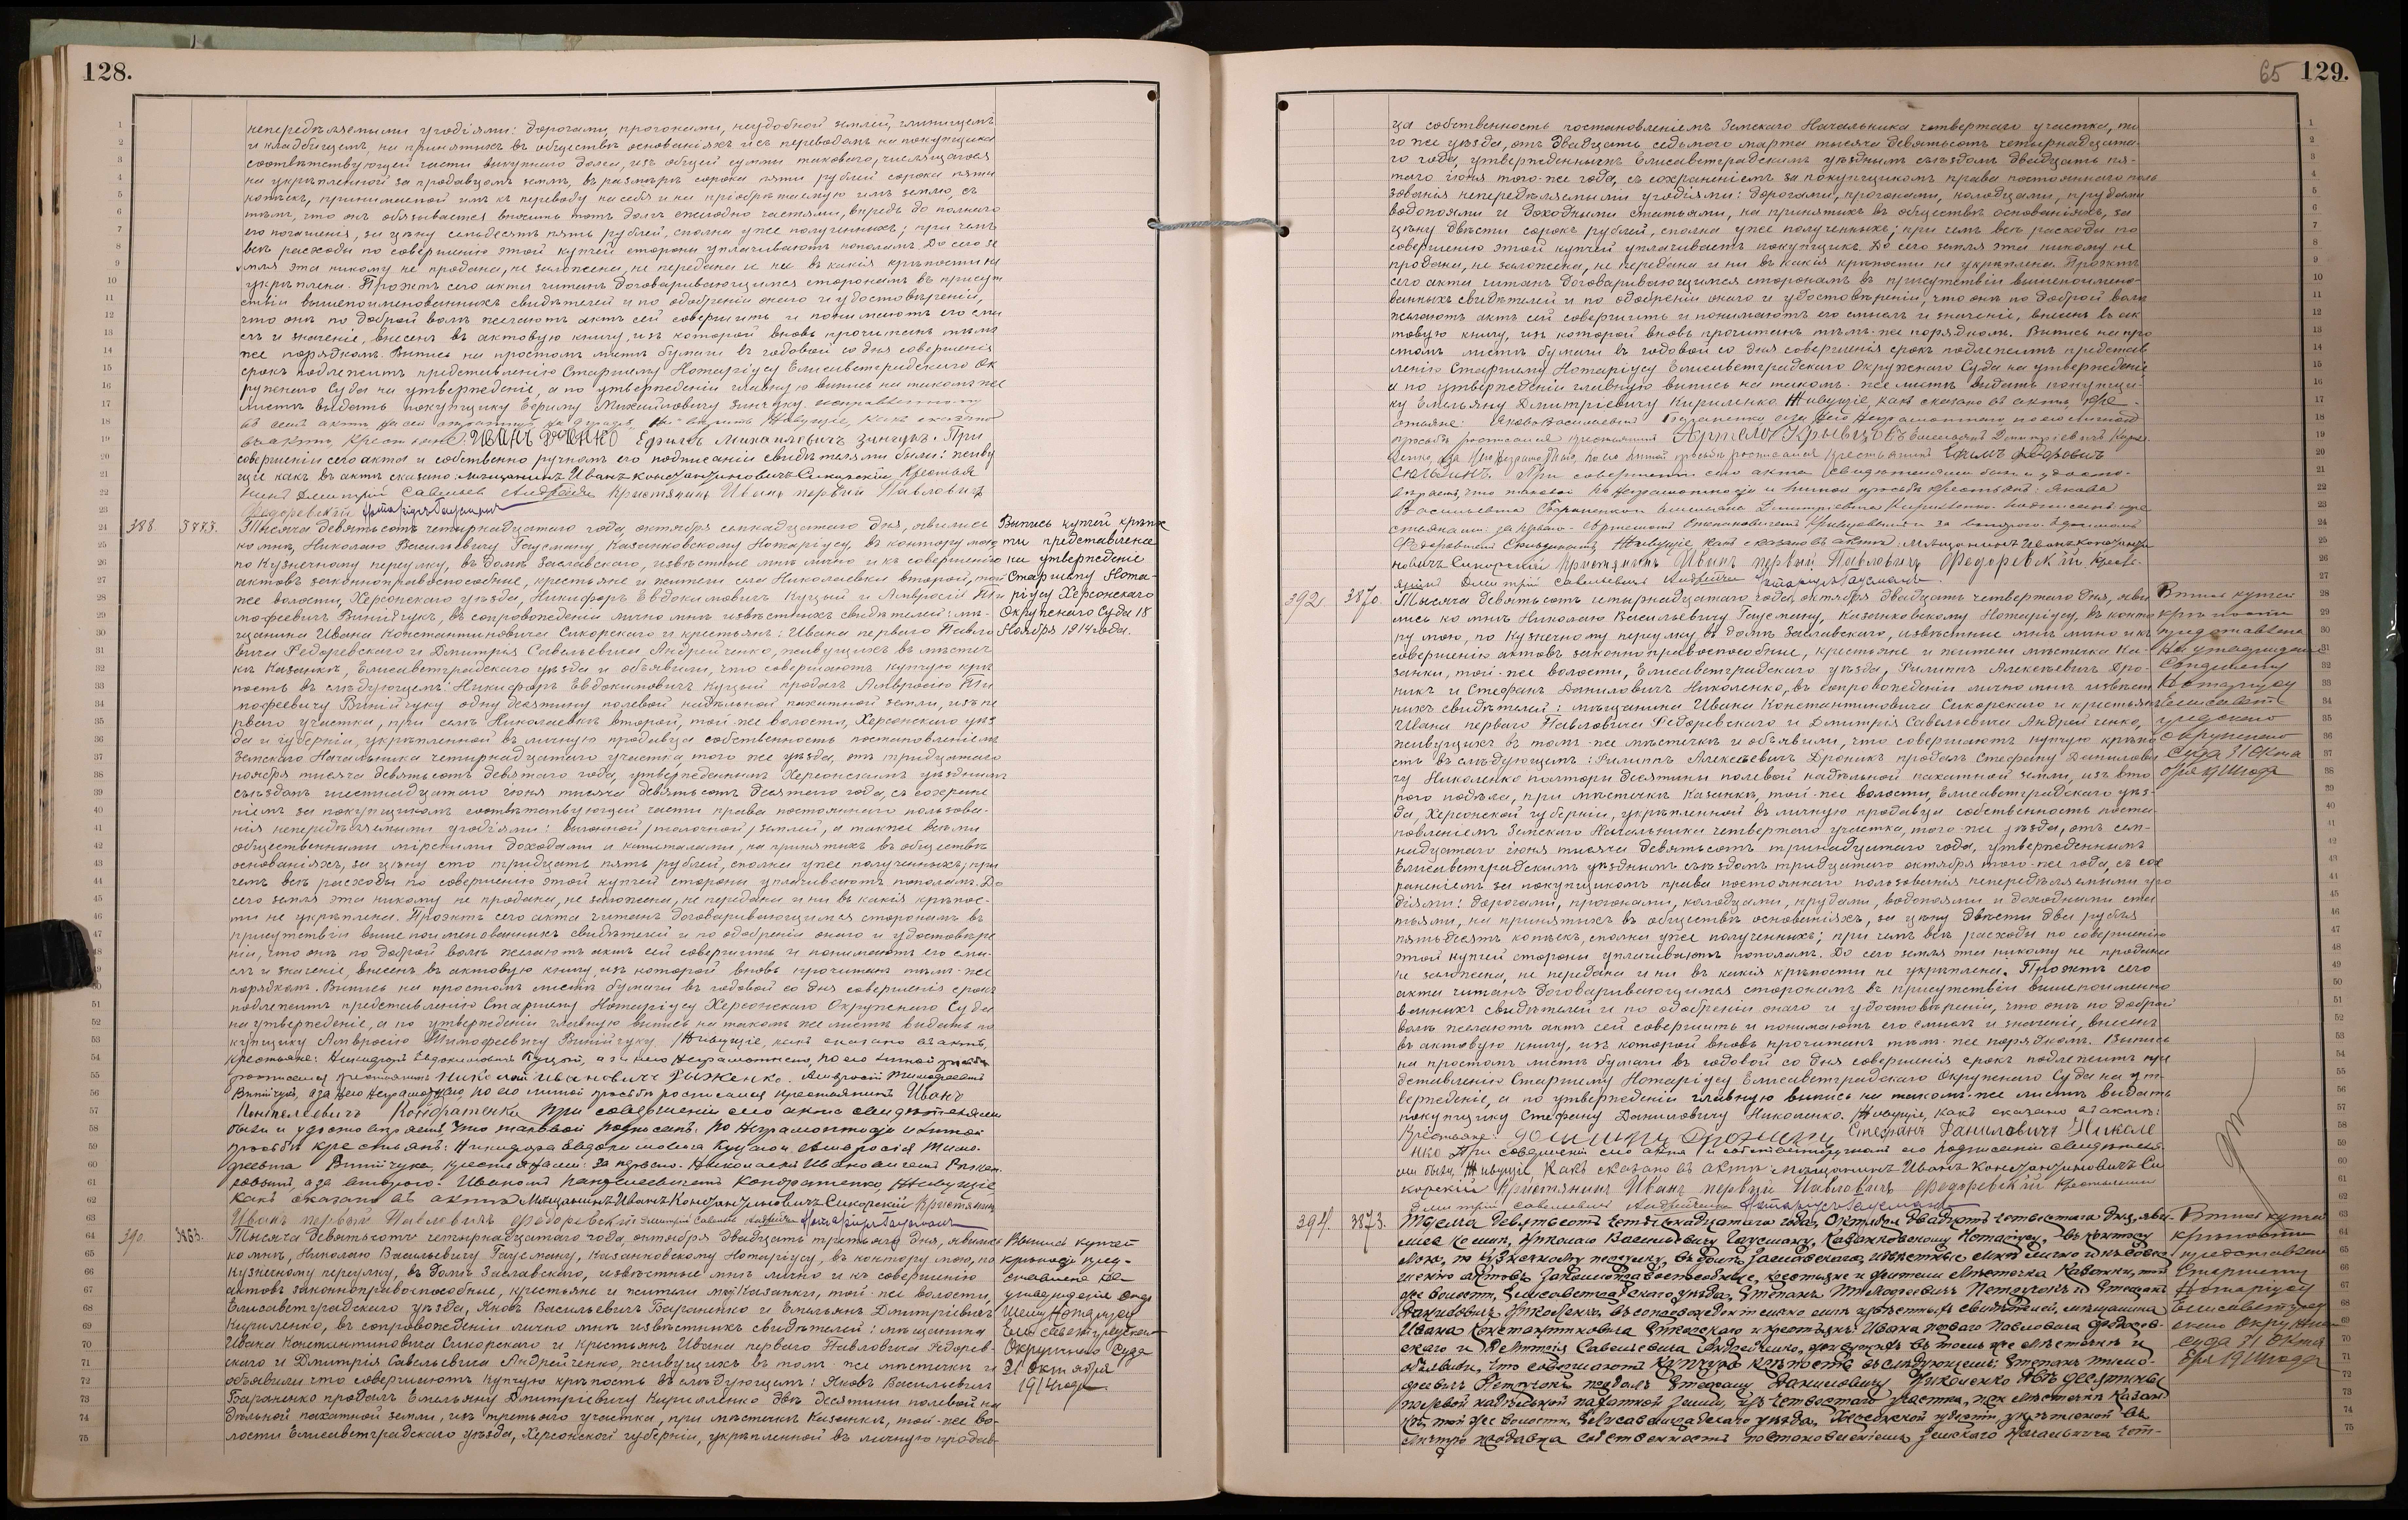 128.
непередѣляемыми угодіями: дорогами, прогонами, неудобной землей, глинищемъ
и кладбищемъ, на принятыхъ въ обществѣ основаніяхъ и съ переводомъ на покупщика
соотвѣтствующей части выкупного долга, изъ общей суммы такового, числящагося
на укрѣпленной за продавцомъ землѣ, въ размѣрѣ сорока пяти рублей сорока пяти
копѣекъ, принимаемой имъ къ переводу на себя и на пріобрѣтаемую имъ землю, съ
тѣмъ, что онъ обязывается вносить тотъ долгъ ежегодно частями, впредь до полнаго
его погашенія, за цѣну семьдесятъ пять рублей, сполна уже полученныхъ; при чемъ
всѣ расходы по совершенію этой купчей стороны уплачиваютъ пополамъ. До сего зе
мля эта никому не продана, не заложена, не передана и ни въ какія крѣпости не
укрѣплена. Проэктъ сего акта читанъ договаривающимся сторонамъ въ присут
ствіи вышепоименованныхъ свидѣтелей и по одобреніи онаго и удостовѣреніи,
что онѣ по доброй волѣ желаютъ актъ сей совершить и понимаютъ его смы
слъ и значеніе, внесенъ въ актовую книгу, изъ которой вновь прочитанъ тѣмъ
же порядкомъ. Выпись на простомъ листѣ бумаги въ годовой со дня совершенія
срокъ подлежитъ представленію Старшему Нотаріусу Елисаветградскаго Ок
ружнаго Суда на утвержденіе, а по утвержденіи главную выпись на такомъ же
листѣ выдать покупщику Ефриму Михайловичу Зинчуку.
Живущіе, какъ сказано
въ актѣ, крестьяне: ИВАНЪ Ефимъ Михаиловичъ Зинчукъ. При
совершеніи сего акта и собственно ручномъ его подписаніи свидѣтелями были: живу
щіе какъ въ актѣ сказано: мѣщанинъ Иванъ Константиновичъ Сикорскій Крестья
нинъ Дмитрій Савельев Андрейченко Крестянинъ Иванъ первый Павловичъ
Федоревскій Нотаріусъ Гаусманъ
388. 3773. Тысяча девятьсотъ четырнадцатаго года, октября семнадцатаго дня, явились
ко мнѣ, Николаю Васильевичу Гаусману, Казанковскому Нотаріусу, въ контору мою
по Кузнечному переулку, въ домѣ Заславскаго, извѣстные мнѣ лично и къ совершенію
актовъ законноправоспособные, крестьяне и жители села Николаевки второй, той
же волости, Херсонскаго уѣзда, Никифоръ Евдокимовичъ Куцый и Амвросій Ти
мофеевичъ Винійчукъ, въ сопровожденіи лично мнѣ извѣстныхъ свидѣтелей: мѣ
щанина Ивана Константиновича Сикорскаго и крестьянъ: Ивана перваго Павло
вича Федоревскаго и Дмитрія Савельевича Андрейченко, живущихъ въ мѣстеч
кѣ Казанкѣ, Елисаветградскаго уѣзда и объявили, что совершаютъ купчую крѣ
пость въ слѣдующемъ: Никифоръ Евдокимовичъ Куцый продалъ Амвросію Ти
мофеевичу Винійчуку одну десятину полевой надѣльной пахатной земли, изъ пе
рваго участка, при селѣ Николаевкѣ второй, той же волости, Херсонскаго уѣз
да и губерніи, укрѣпленной въ личную продавца собственность постановленіемъ
Земскаго Начальника четырнадцатаго участка, того же уѣзда, отъ тридцатаго
ноября тысяча девятьсотъ девятаго года, утвержденнымъ Херсонскимъ уѣзднымъ
съѣздомъ шестнадцатаго іюня тысяча девятьсотъ десятаго года, съ сохране
ніемъ за покупщикомъ соотвѣтствующей части права постояннаго пользова-
нія непередѣляемыми угодіями: выгонной /толочной/ землей, а также всѣми
общественными мірскими доходами и капиталами, на принятыхъ въ обществѣ
основаніяхъ, за цѣну сто тридцать пять рублей, сполна уже полученныхъ, при
чемъ всѣ расходы по совершенію этой купчей стороны уплачиваютъ пополамъ. До
сего земля эта никому не продана, не заложена, не передана и ни въ какія крѣпос-
ти не укрѣплена. Проэктъ сего акта читанъ договаривающимся сторонамъ въ
присутствіи вышепоименованныхъ свидѣтелей и по одобреніи онаго и удостовѣре
ніи, что онѣ по доброй волѣ желаютъ актъ сей совершить и понимаютъ его смы-
слъ и значеніе, внесенъ въ актовую книгу, изъ которой вновь прочитанъ тѣмъ-же
порядкомъ. Выпись на простомъ листѣ бумаги въ годовой со дня совершенія срокъ
подлежитъ представленію Старшему Нотаріусу Херсонскаго Окружнаго Суда
на утвержденіе, а по утвержденіи главную выпись на такомъ же листѣ выдать по
купщику Амвросію Тимофеевичу Винійчуку. Живущіе, какъ сказано въ актѣ,
крестьяне: Никифоръ Евдокимовичъ Куцый, а за него неграмотнаго, по его личной просьбѣ
росписался крестьянинъ Николай Ивановичъ Рыженко. Амвросій Тимофеевичъ
Винійчукъ, а за него неграмотнаго, по его личной просьбѣ росписался крестьянинъ Иванъ
Пантелеевичъ Кондратенко При совершеніи сего акта свидѣтелями
были и удостовѣряемъ, что таковой подписанъ: по неграмотности и личной
просьбѣ крестьянъ: Никифора Евдокимовича Куцаго и Амвросія Тимо-
феевича Винійчука, крестьянами: за перваго - Николаемъ Ивановичемъ Рыжен-
ковымъ, а за втораго - Иваномъ Пантелеевичемъ Кондратенко, Живущіе
какъ сказано въ актѣ Мѣщанинъ Иванъ Константиновичъ Сикорскій Крестянин
Иванъ первый Павловичъ Федоревскій Дмитрій Савельев Андрейченко Нотаріусъ Гаусманъ
Выпись купчей крѣпос
ти представлена
на утвержденіе
Старшему Нота-
ріусу Херсонскаго
Окружнаго Суда 18
Ноября 1914 года.
390. 3863. Тысяча девятьсотъ четырнадцатаго года, октября двадцать третьяго дня, явились
ко мнѣ, Николаю Васильевичу Гаусману, Казанковскому Нотаріусу, въ контору мою, по
Кузнечному переулку, въ домѣ Заславскаго, извѣстные мнѣ лично и къ совершенію
актовъ законноправоспособные, крестьяне и жители м. Казанки, той-же волости,
Елисаветградскаго уѣзда, Яковъ Васильевичъ Бараненко и Емельянъ Дмитріевичъ
Кириленко, въ сопровожденіи лично мнѣ извѣстныхъ свидѣтелей: мѣщанина
Ивана Константиновича Сикорскаго и крестьянъ Ивана перваго Павловича Федорев-
скаго и Дмитрія Савельевича Андрейченко, живущихъ въ томъ-же мѣстечкѣ и
объявили, что совершаютъ купчую крѣпость въ слѣдующемъ: Яковъ Васильевичъ
Бараненко продалъ Емельяну Дмитріевичу Кириленко двѣ десятины полевой на
дѣльной пахатной земли, изъ третьяго участка, при мѣстечкѣ Казанкѣ, той-же во-
лости Елисаветградскаго уѣзда, Херсонской губерніи, укрѣпленной въ личную продав-
Выпись купчей
крѣпости пред-
ставлена на
утвержденіе Стар
шему Нотаріусу
Елисаветградскаго
Окружнаго Суда
31 октября
1914 года
65 129.
ца собственность постановленіемъ Земскаго Начальника четвертаго участка, то
го же уѣзда, отъ двадцать седьмого марта тысяча девятьсотъ четырнадцата-
го года, утвержденнымъ Елисаветградскимъ уѣзднымъ съѣздомъ двадцать пя-
таго іюня того-же года, съ сохраненіемъ за покупщикомъ права постояннаго поль
зованія непередѣляемыми угодіями: дорогами, прогонами, колодцами, прудами
водопоями и доходными статьями, на принятыхъ въ обществѣ основаніяхъ, за
цѣну двѣсти сорокъ рублей, сполна уже полученныхъ; при чемъ всѣ расходы по
совершенію этой купчей уплачиваетъ покупщикъ. До сего земля эта никому не
продана, не заложена, не передана и ни въ какія крѣпости не укрѣплена. Проэктъ
сего акта читанъ договаривающимся сторонамъ въ присутствіи вышепоимено-
ванныхъ свидѣтелей и по одобреніи онаго и удостовѣреніи, что онѣ по доброй волѣ
желаютъ актъ сей совершить и понимаютъ его смыслъ и значеніе, внесенъ въ ак
товую книгу, изъ которой вновь прочитанъ тѣмъ-же порядкомъ. Выпись на про
стомъ листѣ бумаги въ годовой со дня совершенія срокъ подлежитъ представ
ленію Старшему Нотаріусу Елисаветградскаго Окружнаго Суда на утвержденіе
а по утвержденіи главную выпись на такомъ-же листѣ выдать покупщи-
ку Емельяну Дмитріевичу Кириленко. Живущіе, какъ сказано въ актѣ, кре-
стьяне: Яковъ Васильевичъ Бараненко а за него неграмотнаго по его личной
просьбѣ росписался крестьянинъ Емельянъ Дмитріевичъ Кири-
ленко, а за него неграмотнаго, по его личной просьбѣ росписался крестьянинъ
При совершеніи сего акта свидѣтелями были и удосто-
вѣряемъ, что таковой по неграмотности и личной просьбѣ крестьянъ: Якова
Васильевича Бараненко и Емельяна Дмитріевича Кириленко подписанъ кре-
стьянами: за перваго - Артемомъ Степановичемъ и за втораго
Федоровичемъ Живущіе какъ сказано въ актѣ: Мѣщанинъ Иванъ Константи
новичъ Сикорскій Крестянинъ Иванъ первый Павловичъ Федоревскій Кресть-
янинъ Дмитрій Савельевичъ Андрейченко Нотаріусъ Гаусманъ.
392. 3870. Тысяча девятьсотъ четырнадцатаго года, октября двадцать четвертаго дня, яви
лись ко мнѣ Николаю Васильевичу Гаусману, Казанковскому Нотаріусу, въ конто
ру мою, по Кузнечному переулку въ домѣ Заславскаго, извѣстные мнѣ лично и къ
совершенію актовъ законноправоспособные, крестьяне и жители мѣстечка Ка-
занки, той-же волости, Елисаветградскаго уѣзда, Филиппъ Алексѣевичъ Дро-
никъ и Стефанъ Даниловичъ Николенко, въ сопровожденіи лично мнѣ извѣст
ныхъ свидѣтелей: мѣщанина Ивана Константиновича Сикорскаго и крестьянъ
Ивана перваго Павловича Федоревскаго и Дмитрія Савельевича Андрейченко,
живущихъ въ томъ-же мѣстечкѣ и объявили, что совершаютъ купчую крѣпо
сть въ слѣдующемъ: Филиппъ Алексѣевичъ Дроникъ продалъ Стефану Данилови
чу Николенко полтори десятины полевой надѣльной пахатной земли, изъ вто
рого подѣла, при мѣстечкѣ Казанкѣ, той-же волости, Елисаветградскаго уѣз-
да, Херсонской губерніи, укрѣпленной въ личную продавца собственность поста-
новленіемъ Земскаго Начальника четвертаго участка, того-же уѣзда, отъ сем-
надцатаго іюня тысяча девятьсотъ тринадцатаго года, утвержденнымъ
Елисаветградскимъ уѣзднымъ съѣздомъ тридцатаго октября того-же года, съ сох
раненіемъ за покупщикомъ права постояннаго пользованія непередѣляемыми уго
діями: дорогами, прогонами, колодцами, прудами, водопоями и доходными ста
тьями, на принятыхъ въ обществѣ основаніяхъ, за цѣну двѣсти два рубля
пятьдесятъ копѣекъ, сполна уже полученныхъ; при чемъ всѣ расходы по совершенію
этой купчей стороны уплачиваютъ пополамъ. До сего земля эта никому не продана
не заложена, не передана и ни въ какія крѣпости не укрѣплена. Проэктъ сего
акта читанъ договаривающимся сторонамъ въ присутствіи вышепоимено
ванныхъ свидѣтелей и по одобреніи онаго и удостовѣреніи, что онѣ по доброй
волѣ желаютъ актъ сей совершить и понимаютъ его смыслъ и значеніе, внесенъ
въ актовую книгу, изъ которой вновь прочитанъ тѣмъ-же порядкомъ. Выпись
на простомъ листѣ бумаги въ годовой со дня совершенія срокъ подлежитъ пре
дставленію Старшему Нотаріусу Елисаветградскаго Окружнаго Суда на ут-
вержденіе, а по утвержденіи главную выпись на такомъ-же листѣ выдать
покупщику Стефану Даниловичу Николенко. Живущіе, какъ сказано въ актѣ:
Крестьяне: Стефанъ Даниловичъ Николе
нко При совершеніи сего акта и собственноручномъ его подписаніи свидѣтеля-
ми были, Живущіе какъ сказано въ актѣ Мѣщанинъ Иванъ Константиновичъ Си
корскій Крестянинъ Иванъ первый Павловичъ Федоревскій Крестьянинъ
Дмитрій Савельевичъ Андрейченко Нотаріусъ Гаусманъ
Выпись купчей
крѣпости
представлена
на утвержденіе
Старшему
Нотаріусу
Елисавет
градскаго
Окружнаго
Суда 31 Октя
бря 1914 года
394. 3873. Тысяча девятьсотъ четырнадцатаго года, Октября двадцать четвертаго дня, яви-
лись ко мнѣ, Николаю Васильевичу Гаусману, Казанковскому Нотаріусу, въ контору
мою, по Кузнечному переулку, въ домѣ Заславскаго, извѣстные мнѣ лично и къ совер-
шенію актовъ законноправоспособные, крестьяне и жители мѣстечка Казанки, той
же волости, Елисаветградскаго уѣзда, Степанъ Тимофеевичъ и Стефанъ
Даниловичъ Николенко, въ сопровожденіи лично мнѣ извѣстныхъ свидѣтелей, мѣщанина
Ивана Константиновича Сикорскаго и крестьянъ: Ивана перваго Павловича Федорев-
скаго и Дмитрія Савельевича Андрейченко, живущихъ въ томъ же мѣстечкѣ и
объявили, что совершаютъ купчую крѣпость въ слѣдующемъ: Степанъ Тимо-
феевичъ продалъ Стефану Даниловичу Николенко двѣ десятины
полевой надѣльной пахатной земли, изъ четвертаго участка, при мѣстечкѣ Казан
кѣ, той же волости, Елисаветградскаго уѣзда, Херсонской губерніи, укрѣпленной въ
личную продавца собственность постановленіемъ Земскаго Начальника чет-
Выпись купчей
крѣпости
представлена
Старшему
Нотаріусу
Елисаветград
скаго Окружн
Суда 31 Октя
бря 1914 года